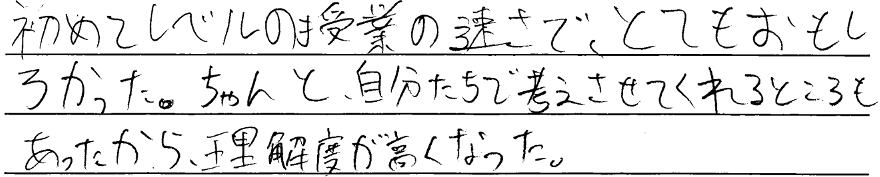 初めてレベルの授業の速さで、とてもおもし
ろかった。ちゃんと、自分たちで考えさせてくれるところも
あったから、理解度が高くなった。